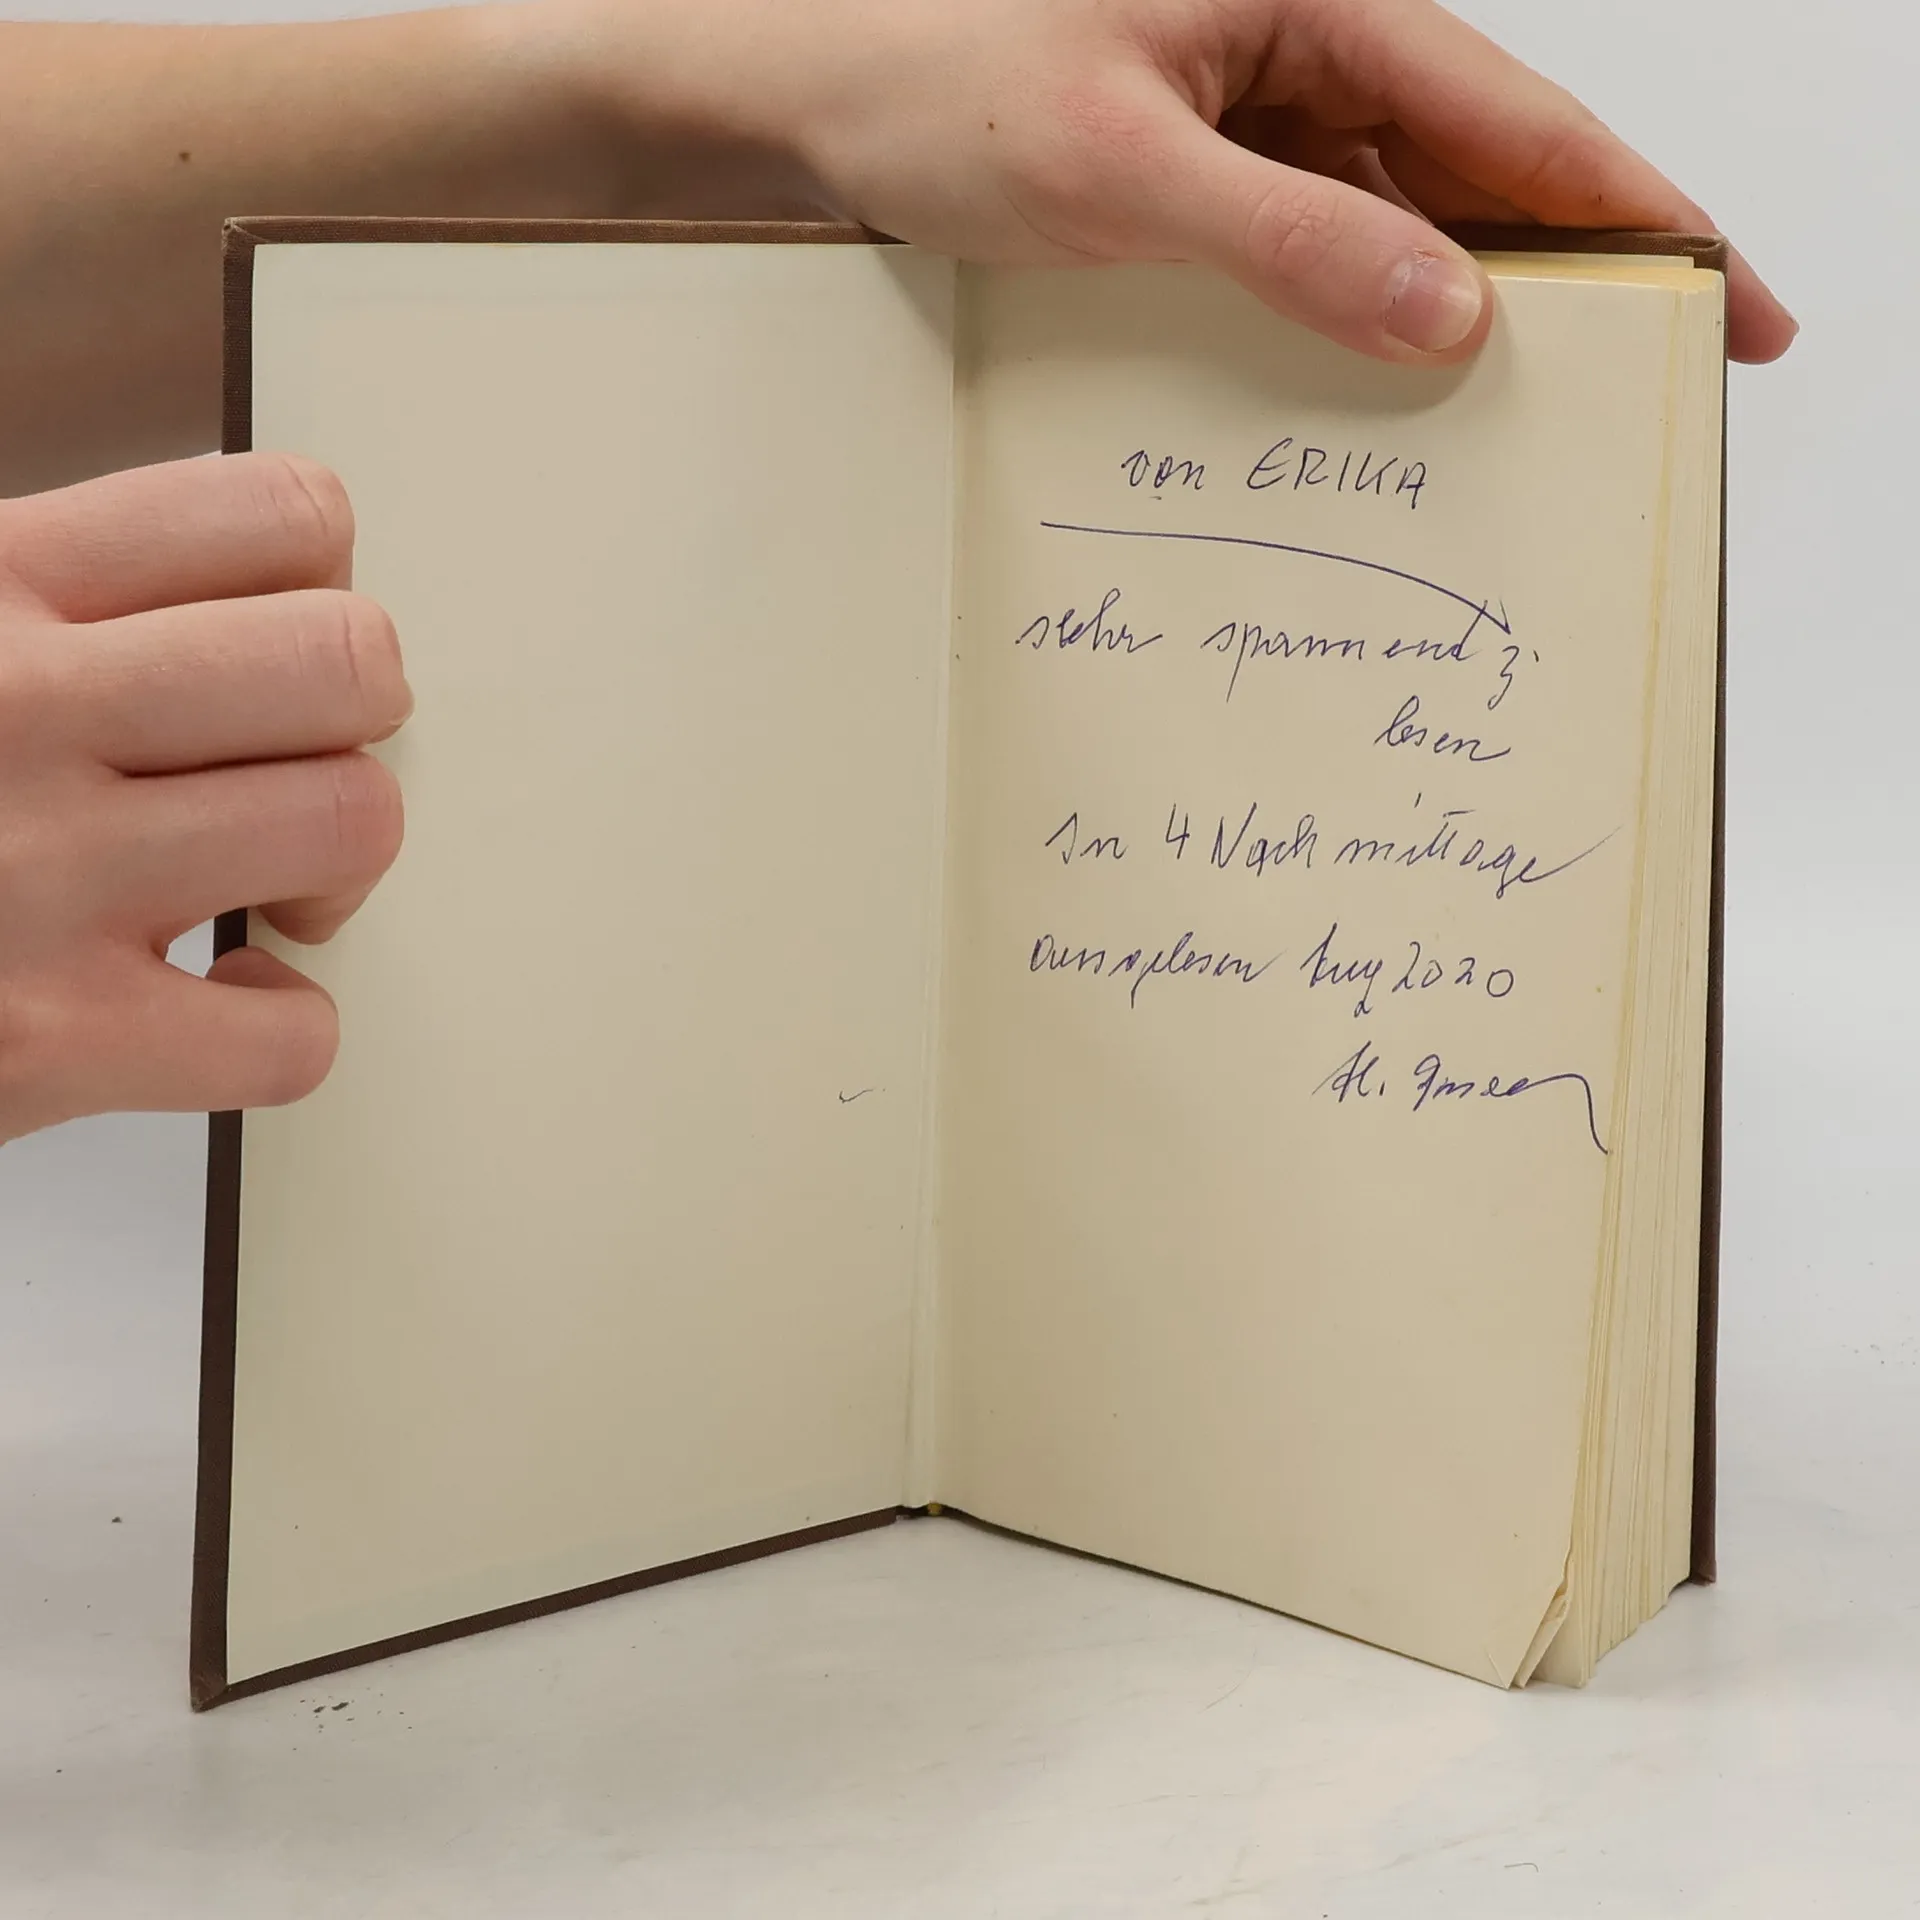 von ERIKA
sehr spannend z.
lesen
In 4 Nachmittage
ausgelesen Aug 2020
H.